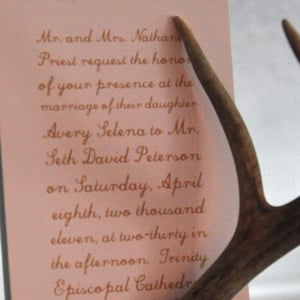 Mr. and Mrs. Nathan
Priest request the honor
of your presence at the
marriage of their daughter
Avery Selena to Mr.
Seth David Peterson
on Saturday, April
eighth, two thousand
eleven, at two-thirty in
the afternoon. Trinity
Episcopal Cathedr